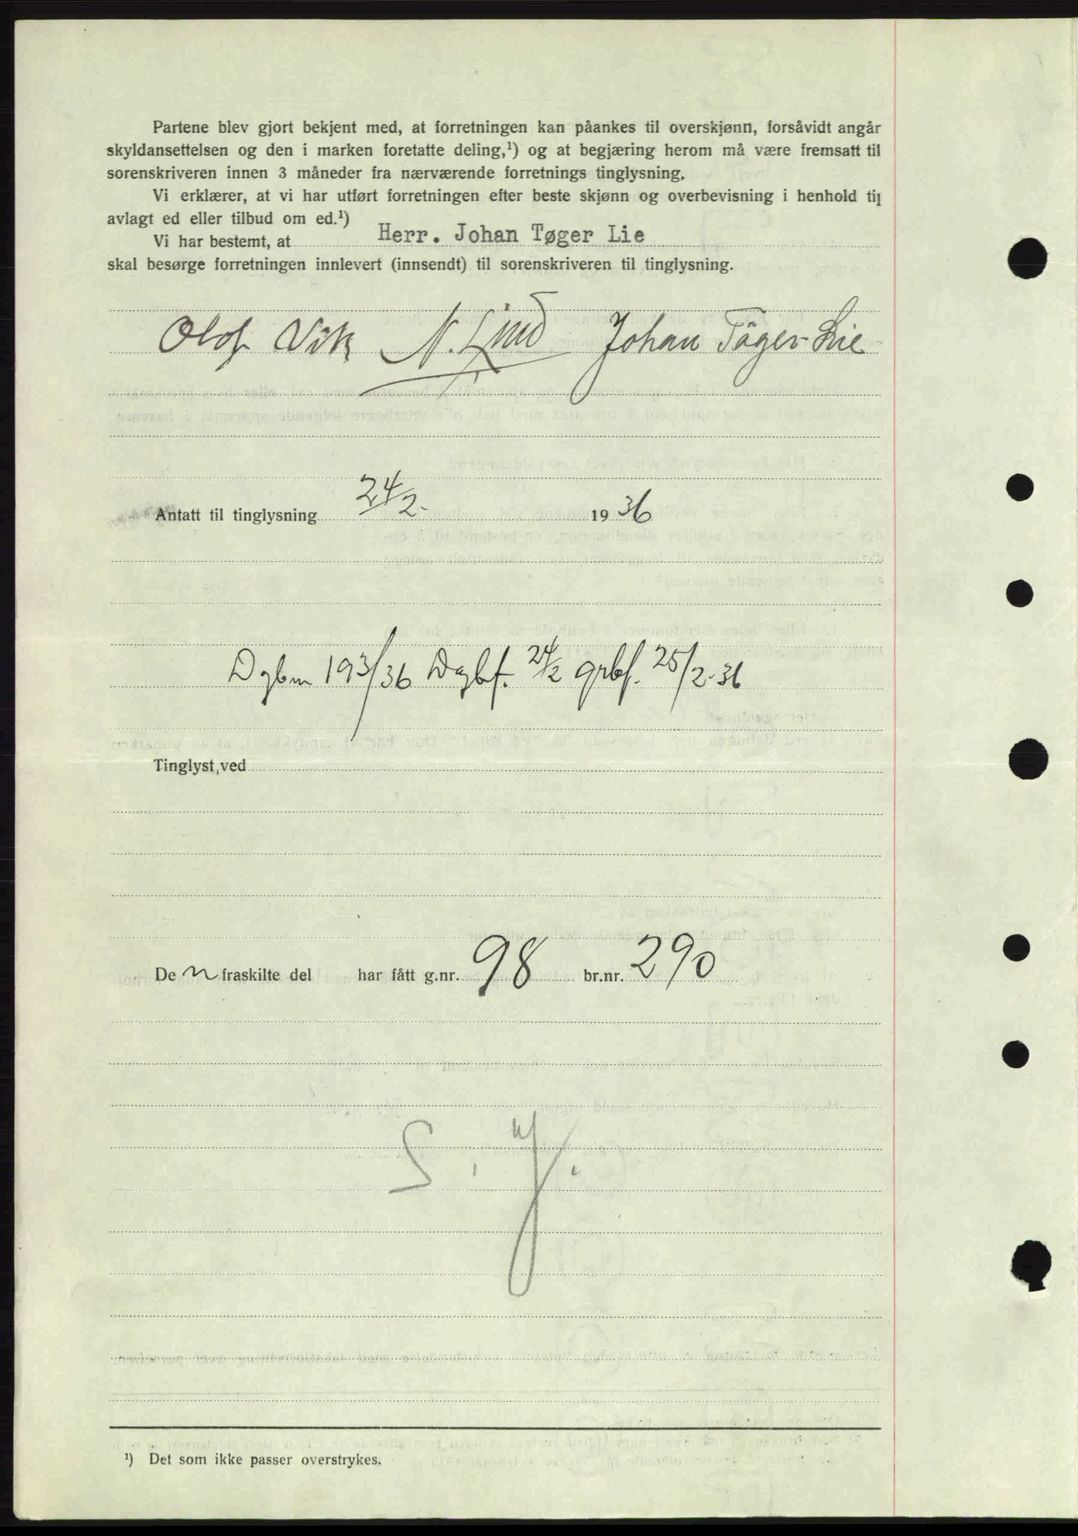 Partene blev gjort bekjent med, at forretningen kan påankes til overskjønn, forsåvidt angår
skyldansettelsen og den i marken foretatte deling,¹) og at begjæring herom må være fremsatt til
sorenskriveren innen 3 måneder fra nærværende forretnings tinglysning.
Vi erklærer, at vi har utført forretningen efter beste skjønn og overbevisning i henhold til
avlagt ed eller tilbud om ed.¹)
Vi har bestemt, at Herr. Johan Tøger Lie
skal besørge forretningen innlevert (innsendt) til sorenskriveren til tinglysning.
Olof Vik N. Lind Johan Töger Lie
Antatt til tinglysning 24/2- 1936
Dgbnr 193/36 Dagbf. 24/2 grbf. 25/2-36
Tinglyst, ved
De n fraskilte del har fått g.nr. 98 br.nr. 290
S. Y.
¹) Det som ikke passer overstrykes.